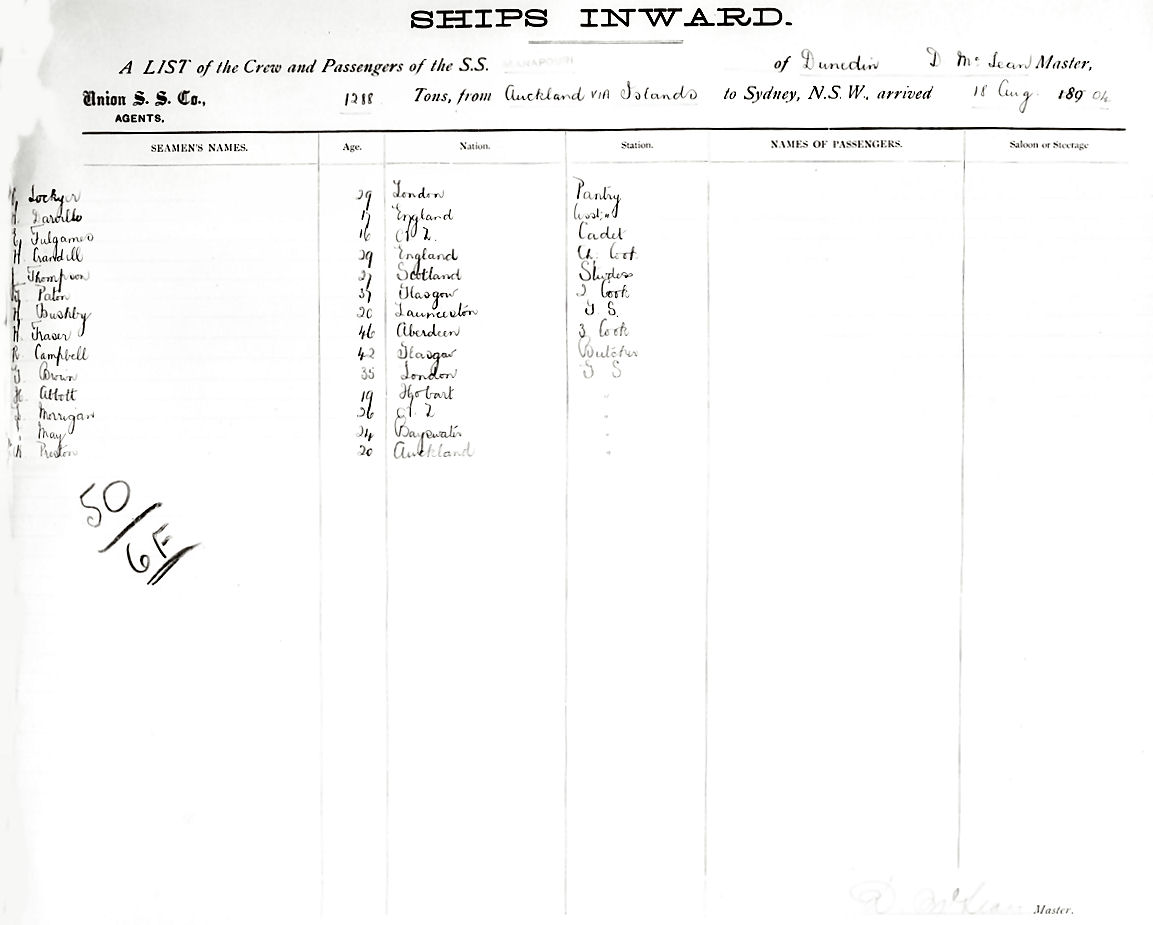 SHIPS INWARD.
A LIST of the Crew and Passengers of the S.S. MANAPOURI of Dunedin D McLean Master,
Union S. S. Co., 1288 Tons, from Auckland VIA Islands to Sydney, N.S.W., arrived 18 Aug. 189 04
AGENTS.
SEAMEN'S NAMES. Age. Nation. Station. NAMES OF PASSENGERS. Saloon or Steerage
Lockyer 29 London Pantry
17 England
E, 16 N Z. Cadet
H Crandell 29 England Ch. Cook
Thompson 27 Scotland Stwdess
Paton 37 Glasgow 2 Cook
H Bushby 20 Launceston G. S.
H Fraser 46 Aberdeen 3 Cook
R Campbell 42 Glasgow Butcher
Brown 35 London G S
H. Abbott 19 Hobart "
Morrigan 26 N. Z "
May 24 Bayswater "
Preston 20 Auckland "
50/
6F
D. McLean Master.